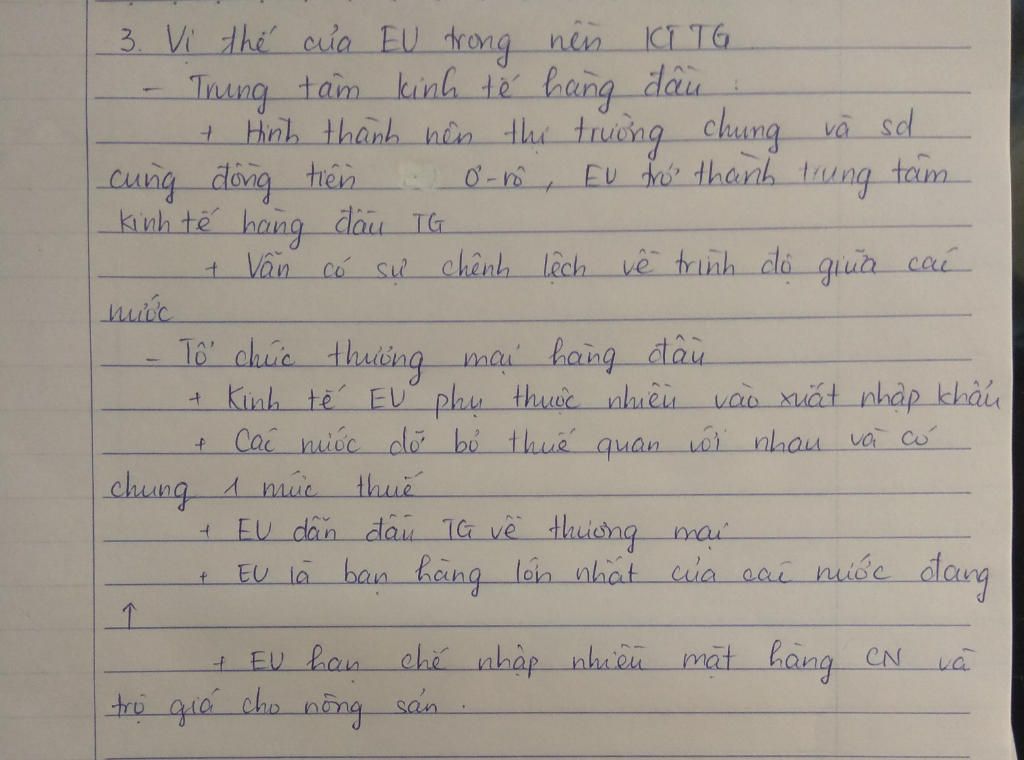 3. Vị thế của EU trong nền KTTG
- Trung tâm kinh tế hàng đầu :
+ Hình thành nên thị trường chung và sd
cùng đồng tiền Ơ-rô, EU trở thành trung tâm
kinh tế hàng đầu TG
+ Vẫn có sự chênh lệch về trình độ giữa các
nước
- Tổ chức thương mại hàng đầu
+ Kinh tế EU phụ thuộc nhiều vào xuất nhập khẩu
+ Các nước dỡ bỏ thuế quan với nhau và có
chung 1 mức thuế
+ EU dẫn đầu TG về thương mại
+ EU là bạn hàng lớn nhất của các nước đang
↑
+ EU hạn chế nhập nhiều mặt hàng CN và
trợ giá cho nông sản.